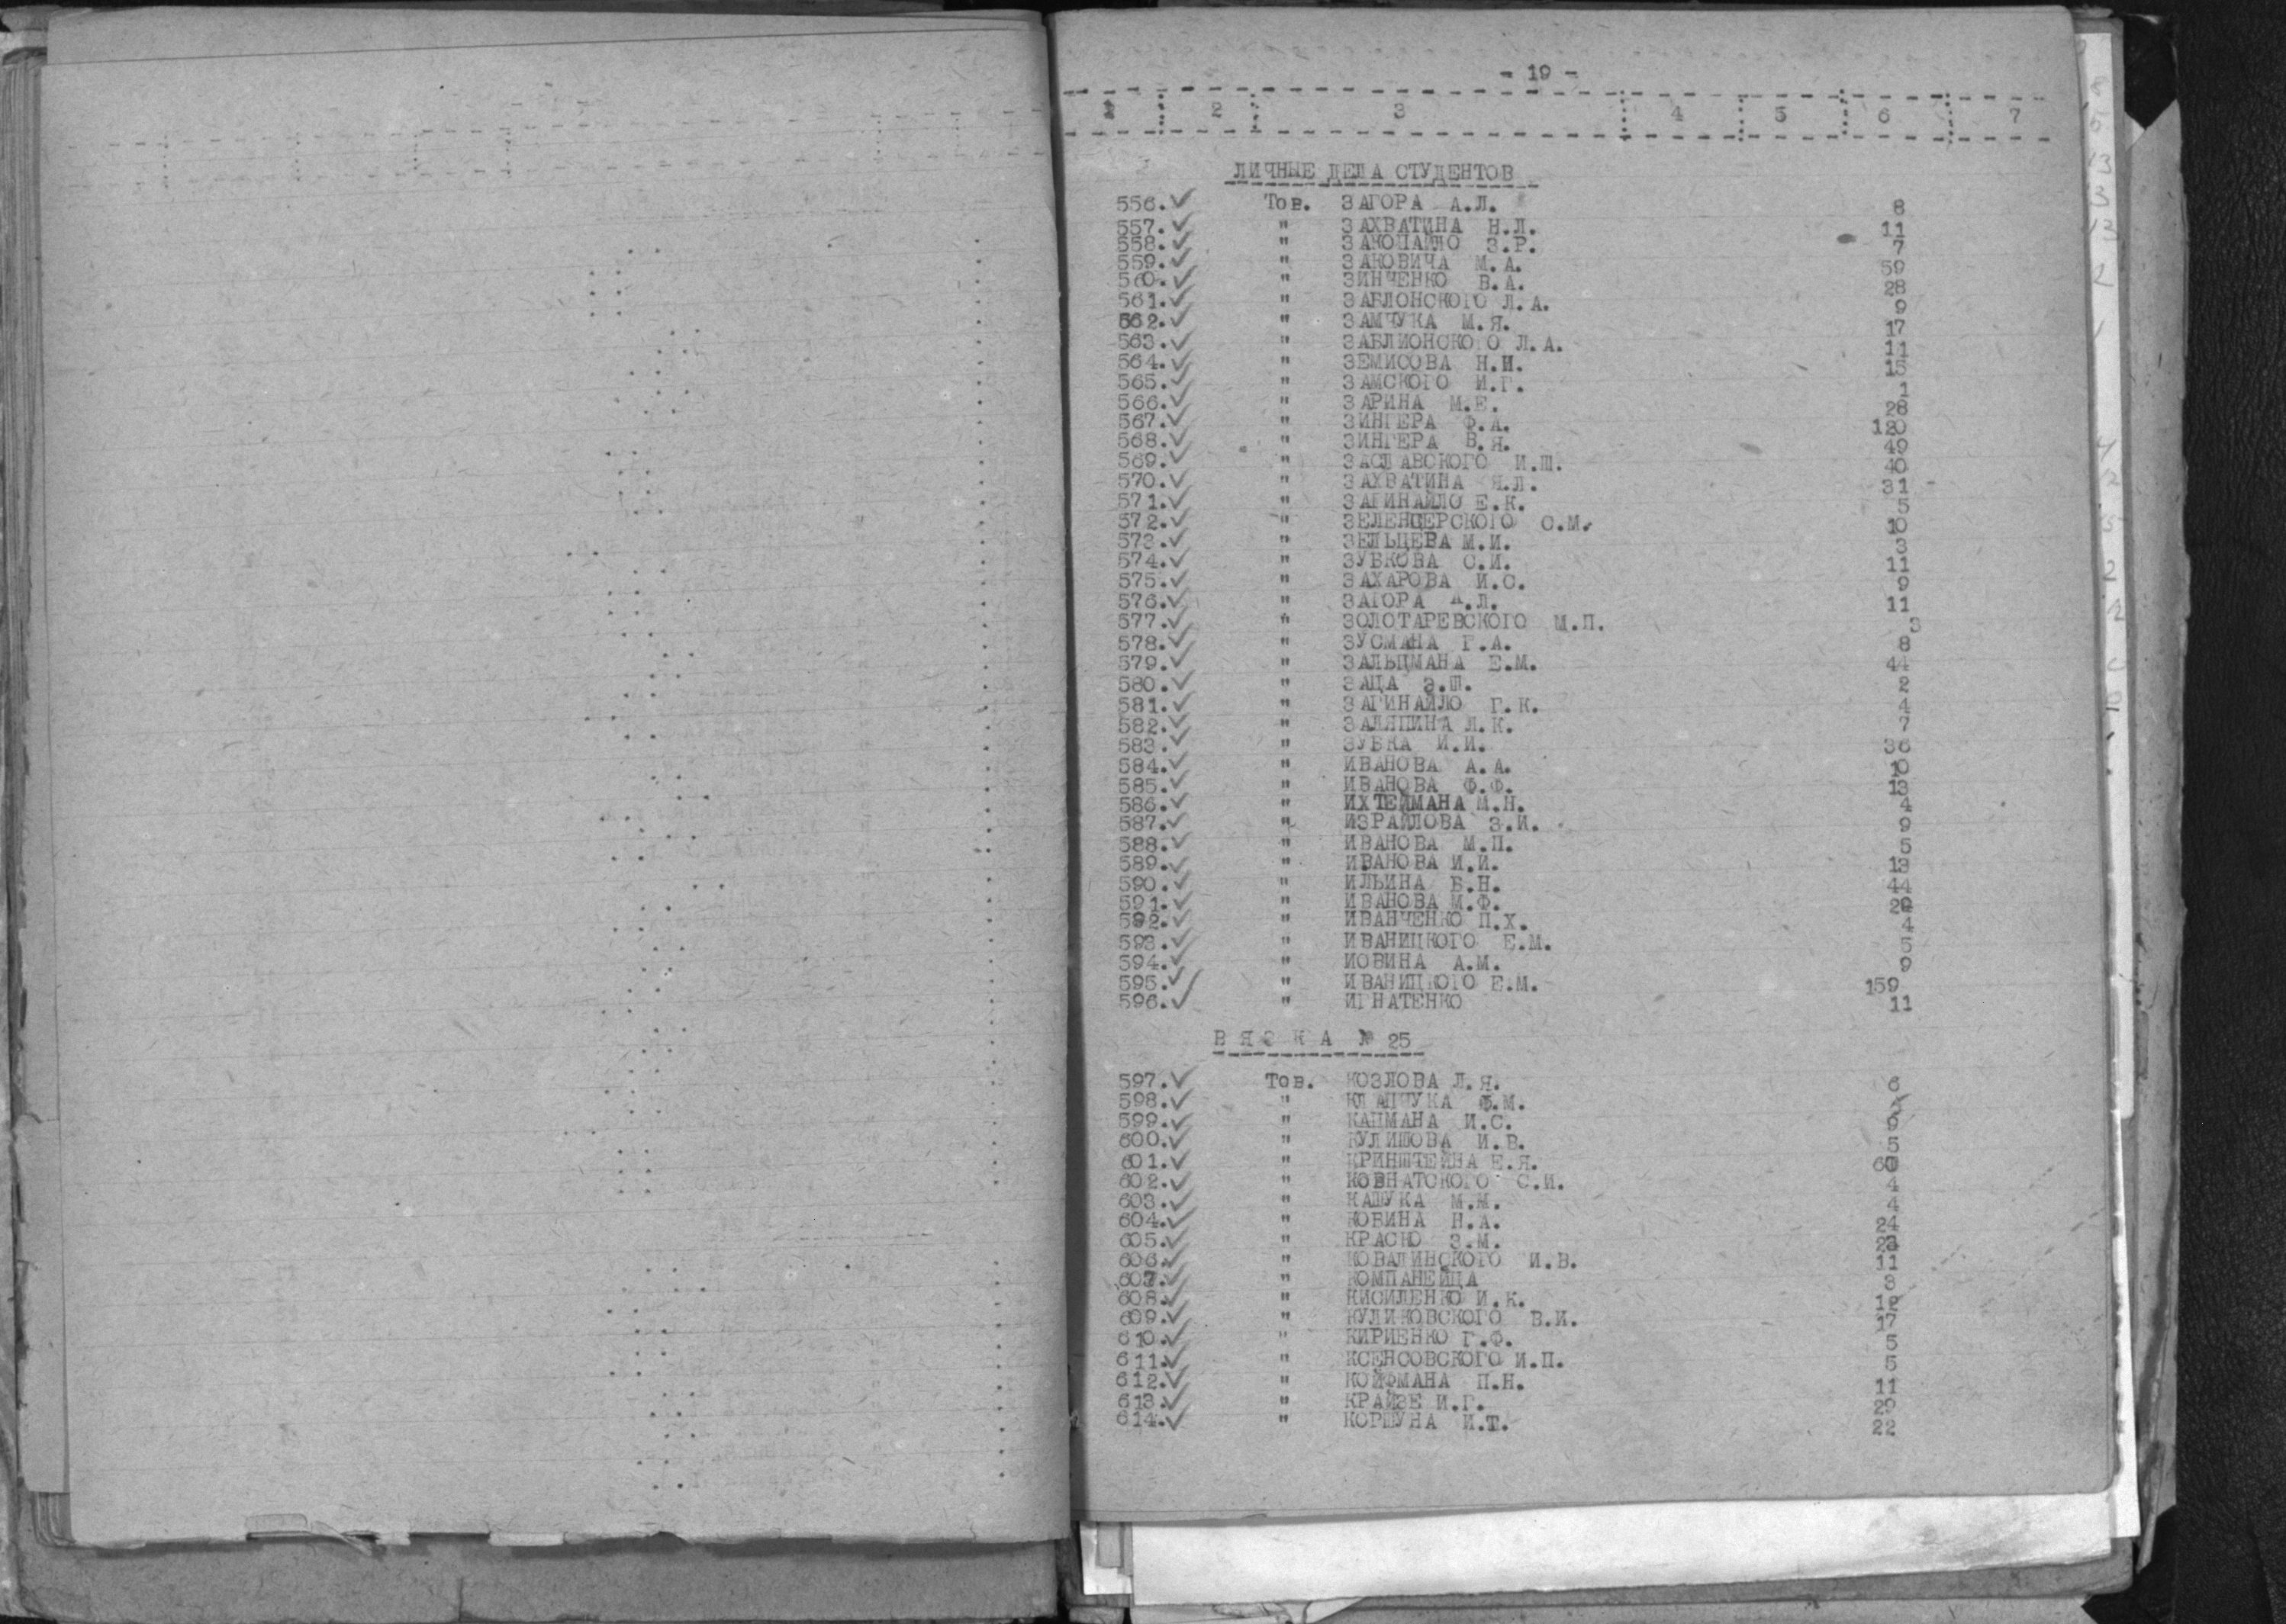 - 19 -
1 2 3 4 5 6 7
ЛИЧНЫЕ ДЕЛА СТУДЕНТОВ
556. Тов. ЗАГОРА А.Л. 8
557. " ЗАХВАТИНА Н.Л. 11
558. " ЗАКОПАЙЛО З.Р. 7
559. " ЗАКОВИЧА М.А. 59
560. " ЗИНЧЕНКО В.А. 28
561. " ЗАБЛОНСКОГО Л.А. 9
562. " ЗАМЧУКА М.Я. 17
563. " ЗАБЛИОНСКОГО Л.А. 11
564. " ЗЕМИСОВА Н.И. 15
565. " ЗАМСКОГО И.Г. 1
566. " ЗАРИНА М.Е. 28
567. " ЗИНГЕРА Ф.А. 120
568. " ЗИНГЕРА В.Я. 49
569. " ЗАСЛАВСКОГО И.Ш. 40
570. " ЗАХВАТИНА Н.Л. 31
571. " ЗАГИНАЙЛО Е.К. 5
572. " ЗЕЛЕНЦЕРСКОГО С.М. 10
573. " ЗЕЛЬЦЕРА М.И. 3
574. " ЗУБКОВА С.И. 11
575. " ЗАХАРОВА И.С. 9
576. " ЗАГОРА А.Л. 11
577. " ЗОЛОТАРЕВСКОГО М.П. 3
578. " ЗУСМАНА Г.А. 8
579. " ЗАЛЬЦМАНА Е.М. 44
580. " ЗАЦА Э.Ш. 2
581. " ЗАГИНАЙЛО Г.К. 4
582. " ЗАЛЯПИНА Л.К. 7
583. " ЗУБКА И.И. 36
584. " ИВАНОВА А.А. 10
585. " ИВАНОВА Ф.Ф. 13
586. " ИХТЕЙМАНА М.Н. 4
587. " ИЗРАЙЛОВА З.И. 9
588. " ИВАНОВА М.П. 5
589. " ИВАНОВА И.И. 13
590. " ИЛЬИНА Б.Н. 44
591. " ИВАНОВА М.Ф. 29
592. " ИВАНЧЕНКО П.Х. 4
593. " ИВАНИЦКОГО Е.М. 5
594. " ИОВИНА А.М. 9
595. " ИВАНИЦКОГО Е.М. 159
596. " ИГНАТЕНКО 11
ВЯЗКА № 25
597. Тов. КОЗЛОВА Л.Я. 6
598. " КЛАПЧУКА Ф.М.
599. " КАПМАНА И.С. 9
600. " КУЛИШОВА И.В. 5
601. " КРИНШТЕЙНА Е.Я.
602. " КОВНАТСКОГО С.И. 4
603. " КАШУКА М.М. 4
604. " КОВИНА Н.А. 24
605. " КРАСЮ З.М.
606. " КОВАЛИНСКОГО И.В. 11
607. " КОМПАНЕЙЦА 3
608. " КИСИЛЕНКО И.К. 12
609. " КУЛИКОВСКОГО В.И. 17
610. " КИРИЕНКО Г.Ф. 5
611. " КСЕНСОВСКОГО И.П. 5
612. " КОЙФМАНА П.Н. 11
613. " КРАЙЗЕ И.Г. 29
614. " КОРШУНА И.Т. 22